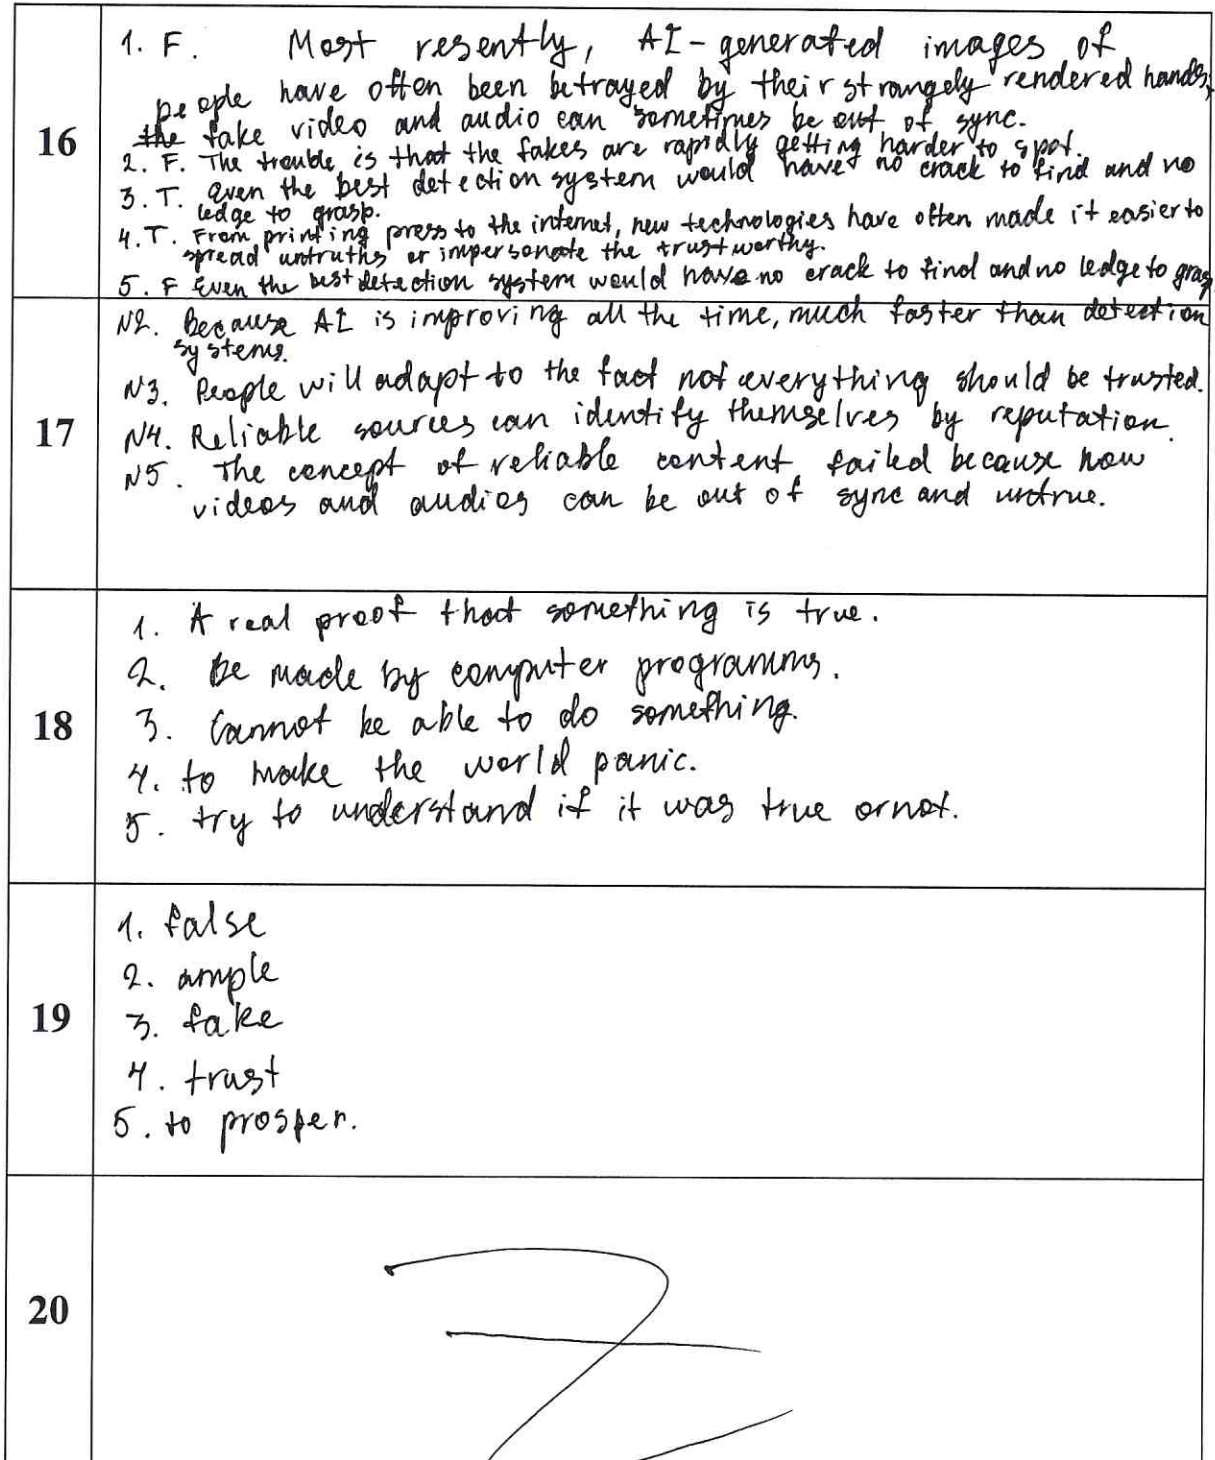 16
1. F. Most resently, AI-generated images of
people have often been betrayed by their strangely rendered hands;
the fake video and audio can sometimes be out of sync.
2. F. The trouble is that the fakes are rapidly getting harder to spot.
3. T. even the best detection system would have no crack to find and no
ledge to grasp.
4. T. From printing press to the internet, new technologies have often made it easier to
spread untruths or impersonate the trustworthy.
5. F Even the best detection system would have no crack to find and no ledge to grasp
17
N2. Because AI is improving all the time, much faster than detection
systems.
N3. People will adapt to the fact not everything should be trusted.
N4. Reliable sources can identify themselves by reputation.
N5. The concept of reliable content failed because now
videos and audios can be out of sync and untrue.
18
1. A real proof that something is true.
2. Be made by computer programms.
3. Cannot be able to do something.
4. to make the world panic.
5. try to understand if it was true or not.
19
1. false
2. ample
3. fake
4. trust
5. to prosper.
20